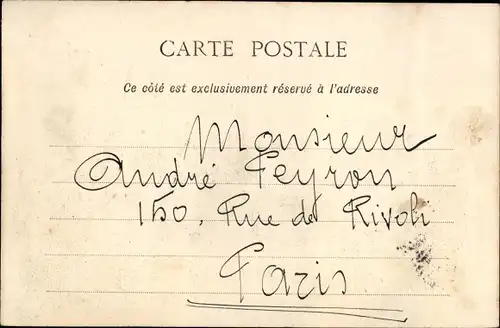 CARTE POSTALE
Ce côté est exclusivement réservé à l'adresse
Monsieur
André Peyron
150, Rue de Rivoli
Paris